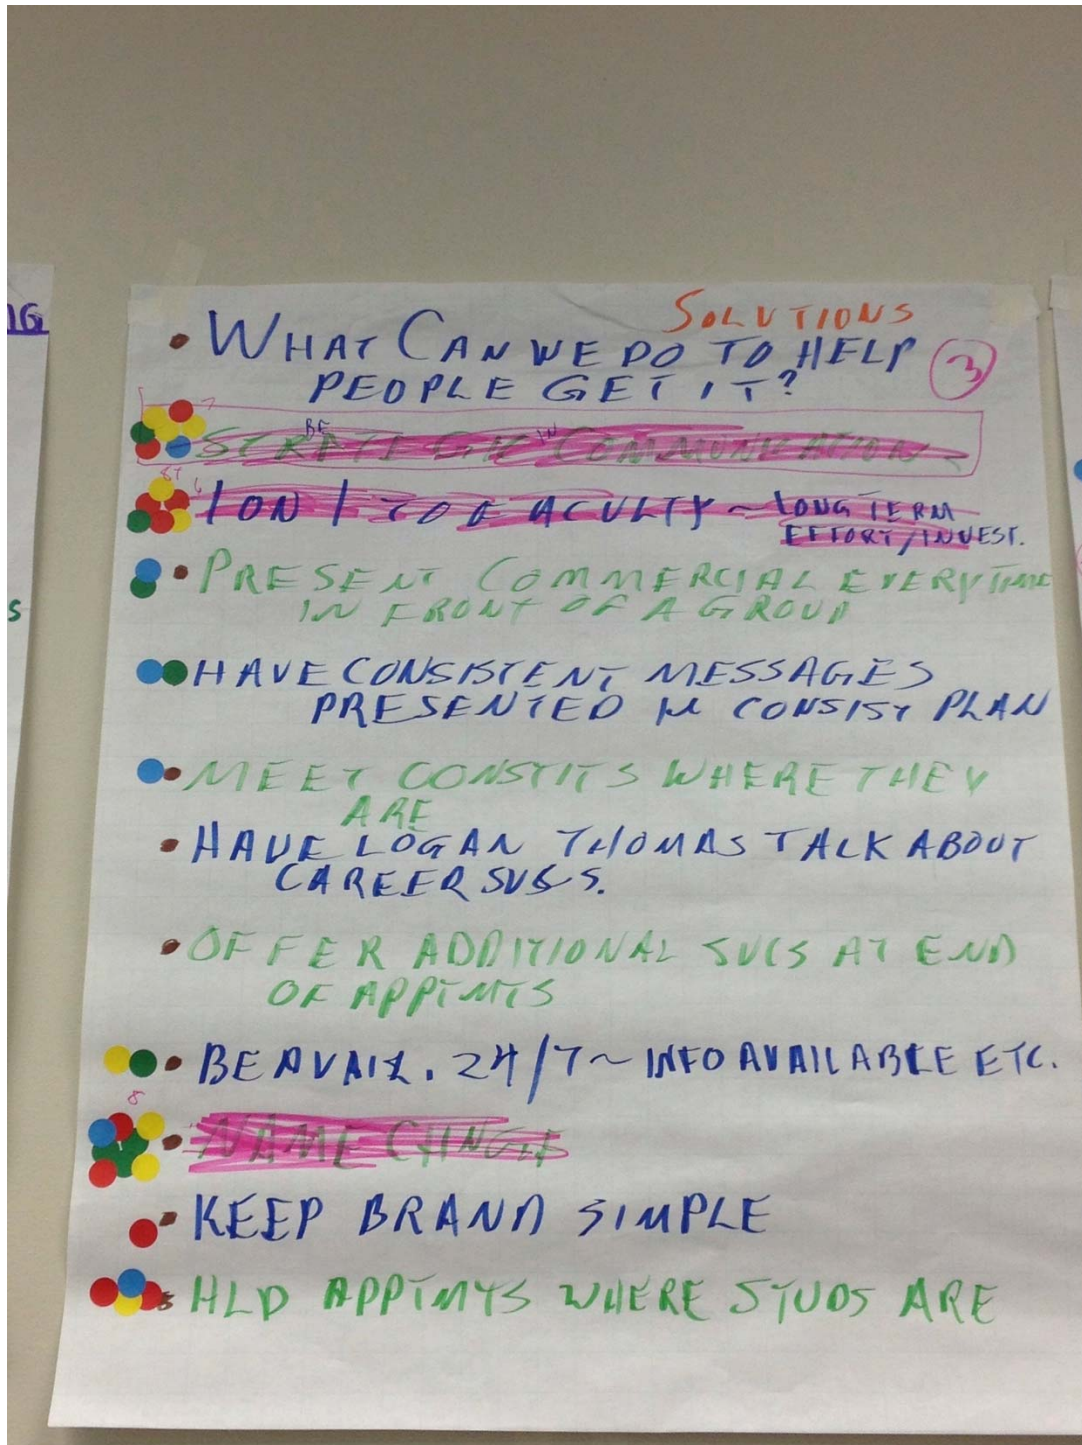 NG
S
SOLUTIONS
• WHAT CAN WE DO TO HELP
PEOPLE GET IT?
3
7
BE IN
STRATEGIC COMMUNICATION
6
1 ON 1 TO FACULTY ~ LONG TERM
EFFORT/INVEST.
• PRESENT COMMERCIAL EVERYTIME
IN FRONT OF A GROUP
HAVE CONSISTENT MESSAGES
PRESENTED CONSIST PLAN
• MEET CONSTITS WHERE THEY
ARE
• HAVE LOGAN THOMAS TALK ABOUT
CAREER SVCS.
• OFFER ADDITIONAL SVCS AT END
OF APPTMTS
• BE AVAIL. 24/7 ~ INFO AVAILABLE ETC.
8
• NAME CHNGE
• KEEP BRAND SIMPLE
HLD APPTMTS WHERE STUDS ARE